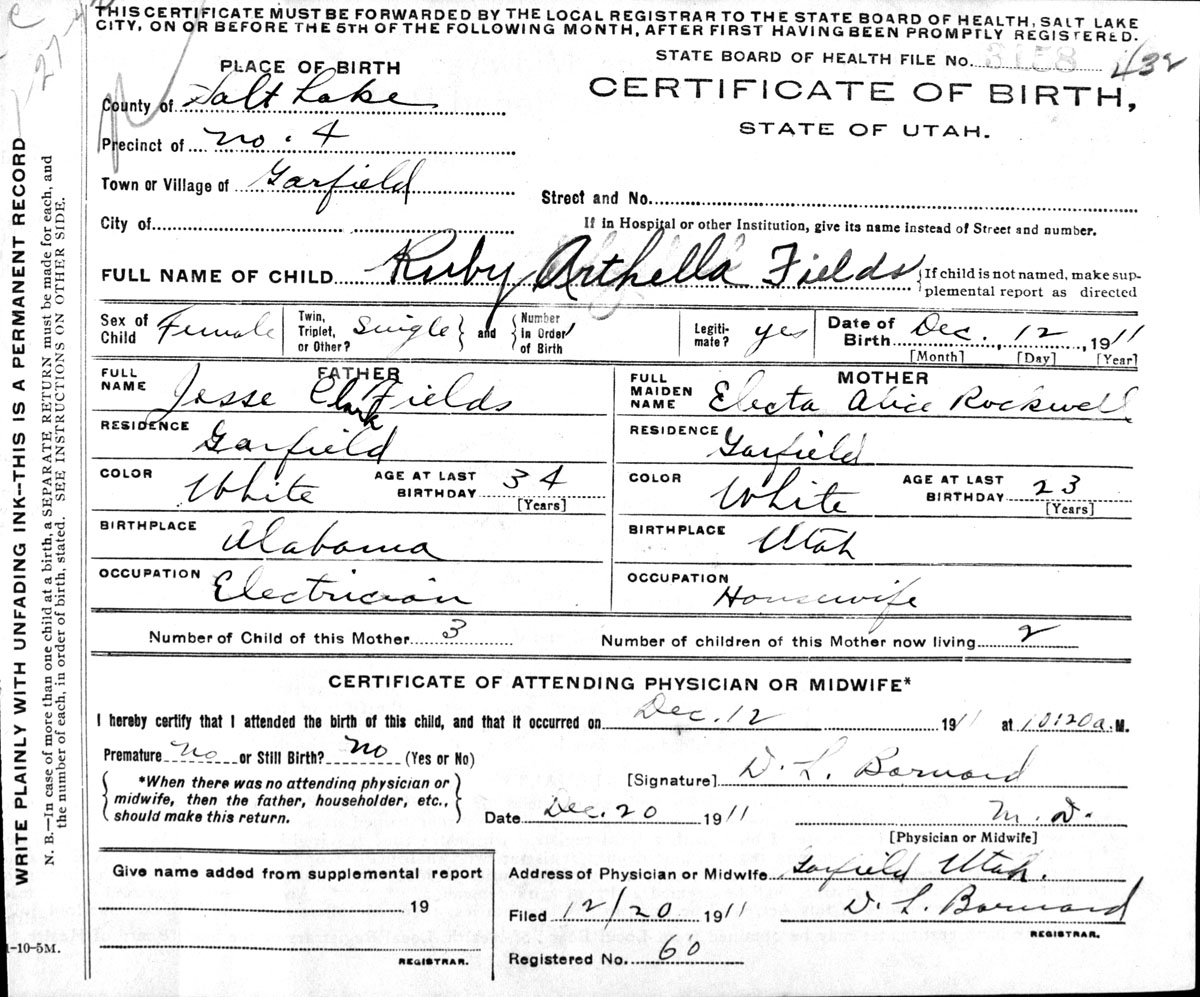 THIS CERTIFICATE MUST BE FORWARDED BY THE LOCAL REGISTRAR TO THE STATE BOARD OF HEALTH, SALT LAKE
CITY, ON OR BEFORE THE 5TH OF THE FOLLOWING MONTH, AFTER FIRST HAVING BEEN PROMPTLY REGISTERED.
STATE BOARD OF HEALTH FILE No. 3158 432
PLACE OF BIRTH
CERTIFICATE OF BIRTH,
STATE OF UTAH.
County of Salt Lake
Precinct of no. 4
Town or Village of Garfield
Street and No.
City of
If in Hospital or other Institution, give its name instead of Street and number.
FULL NAME OF CHILD Ruby Arthella Fields {If child is not named, make sup-
plemental report as directed
Sex of Child Female Twin, Triplet, or Other? Single } and { Number in Order of Birth 1 Legiti-mate? yes Date of Birth Dec. 12, 1911
[Month] [Day] [Year]
FATHER MOTHER
FULL NAME Jesse Clark Fields FULL MAIDEN NAME Electa Alice Rockwell
RESIDENCE Garfield RESIDENCE Garfield
COLOR White AGE AT LAST BIRTHDAY 34 [Years] COLOR White AGE AT LAST BIRTHDAY 23 [Years]
BIRTHPLACE Alabama BIRTHPLACE Utah
OCCUPATION Electrician OCCUPATION Housewife
Number of Child of this Mother 3 Number of children of this Mother now living 2
CERTIFICATE OF ATTENDING PHYSICIAN OR MIDWIFE*
I hereby certify that I attended the birth of this child, and that it occurred on Dec. 12 1911 at 10120a. M.
Premature No or Still Birth? No (Yes or No)
*When there was no attending physician or
midwife, then the father, householder, etc.,
should make this return.
[Signature] D. L. Barnard
Date Dec. 20 1911 M. D.
[Physician or Midwife]
Give name added from supplemental report
19
REGISTRAR.
Address of Physician or Midwife Garfield Utah.
Filed 12/20 1911 D. L. Barnard
REGISTRAR.
Registered No. 60
1-10-5M.
WRITE PLAINLY WITH UNFADING INK—THIS IS A PERMANENT RECORD
N. B.—In case of more than one child at a birth, a SEPARATE RETURN must be made for each, and
the number of each, in order of birth, stated. SEE INSTRUCTIONS ON OTHER SIDE.